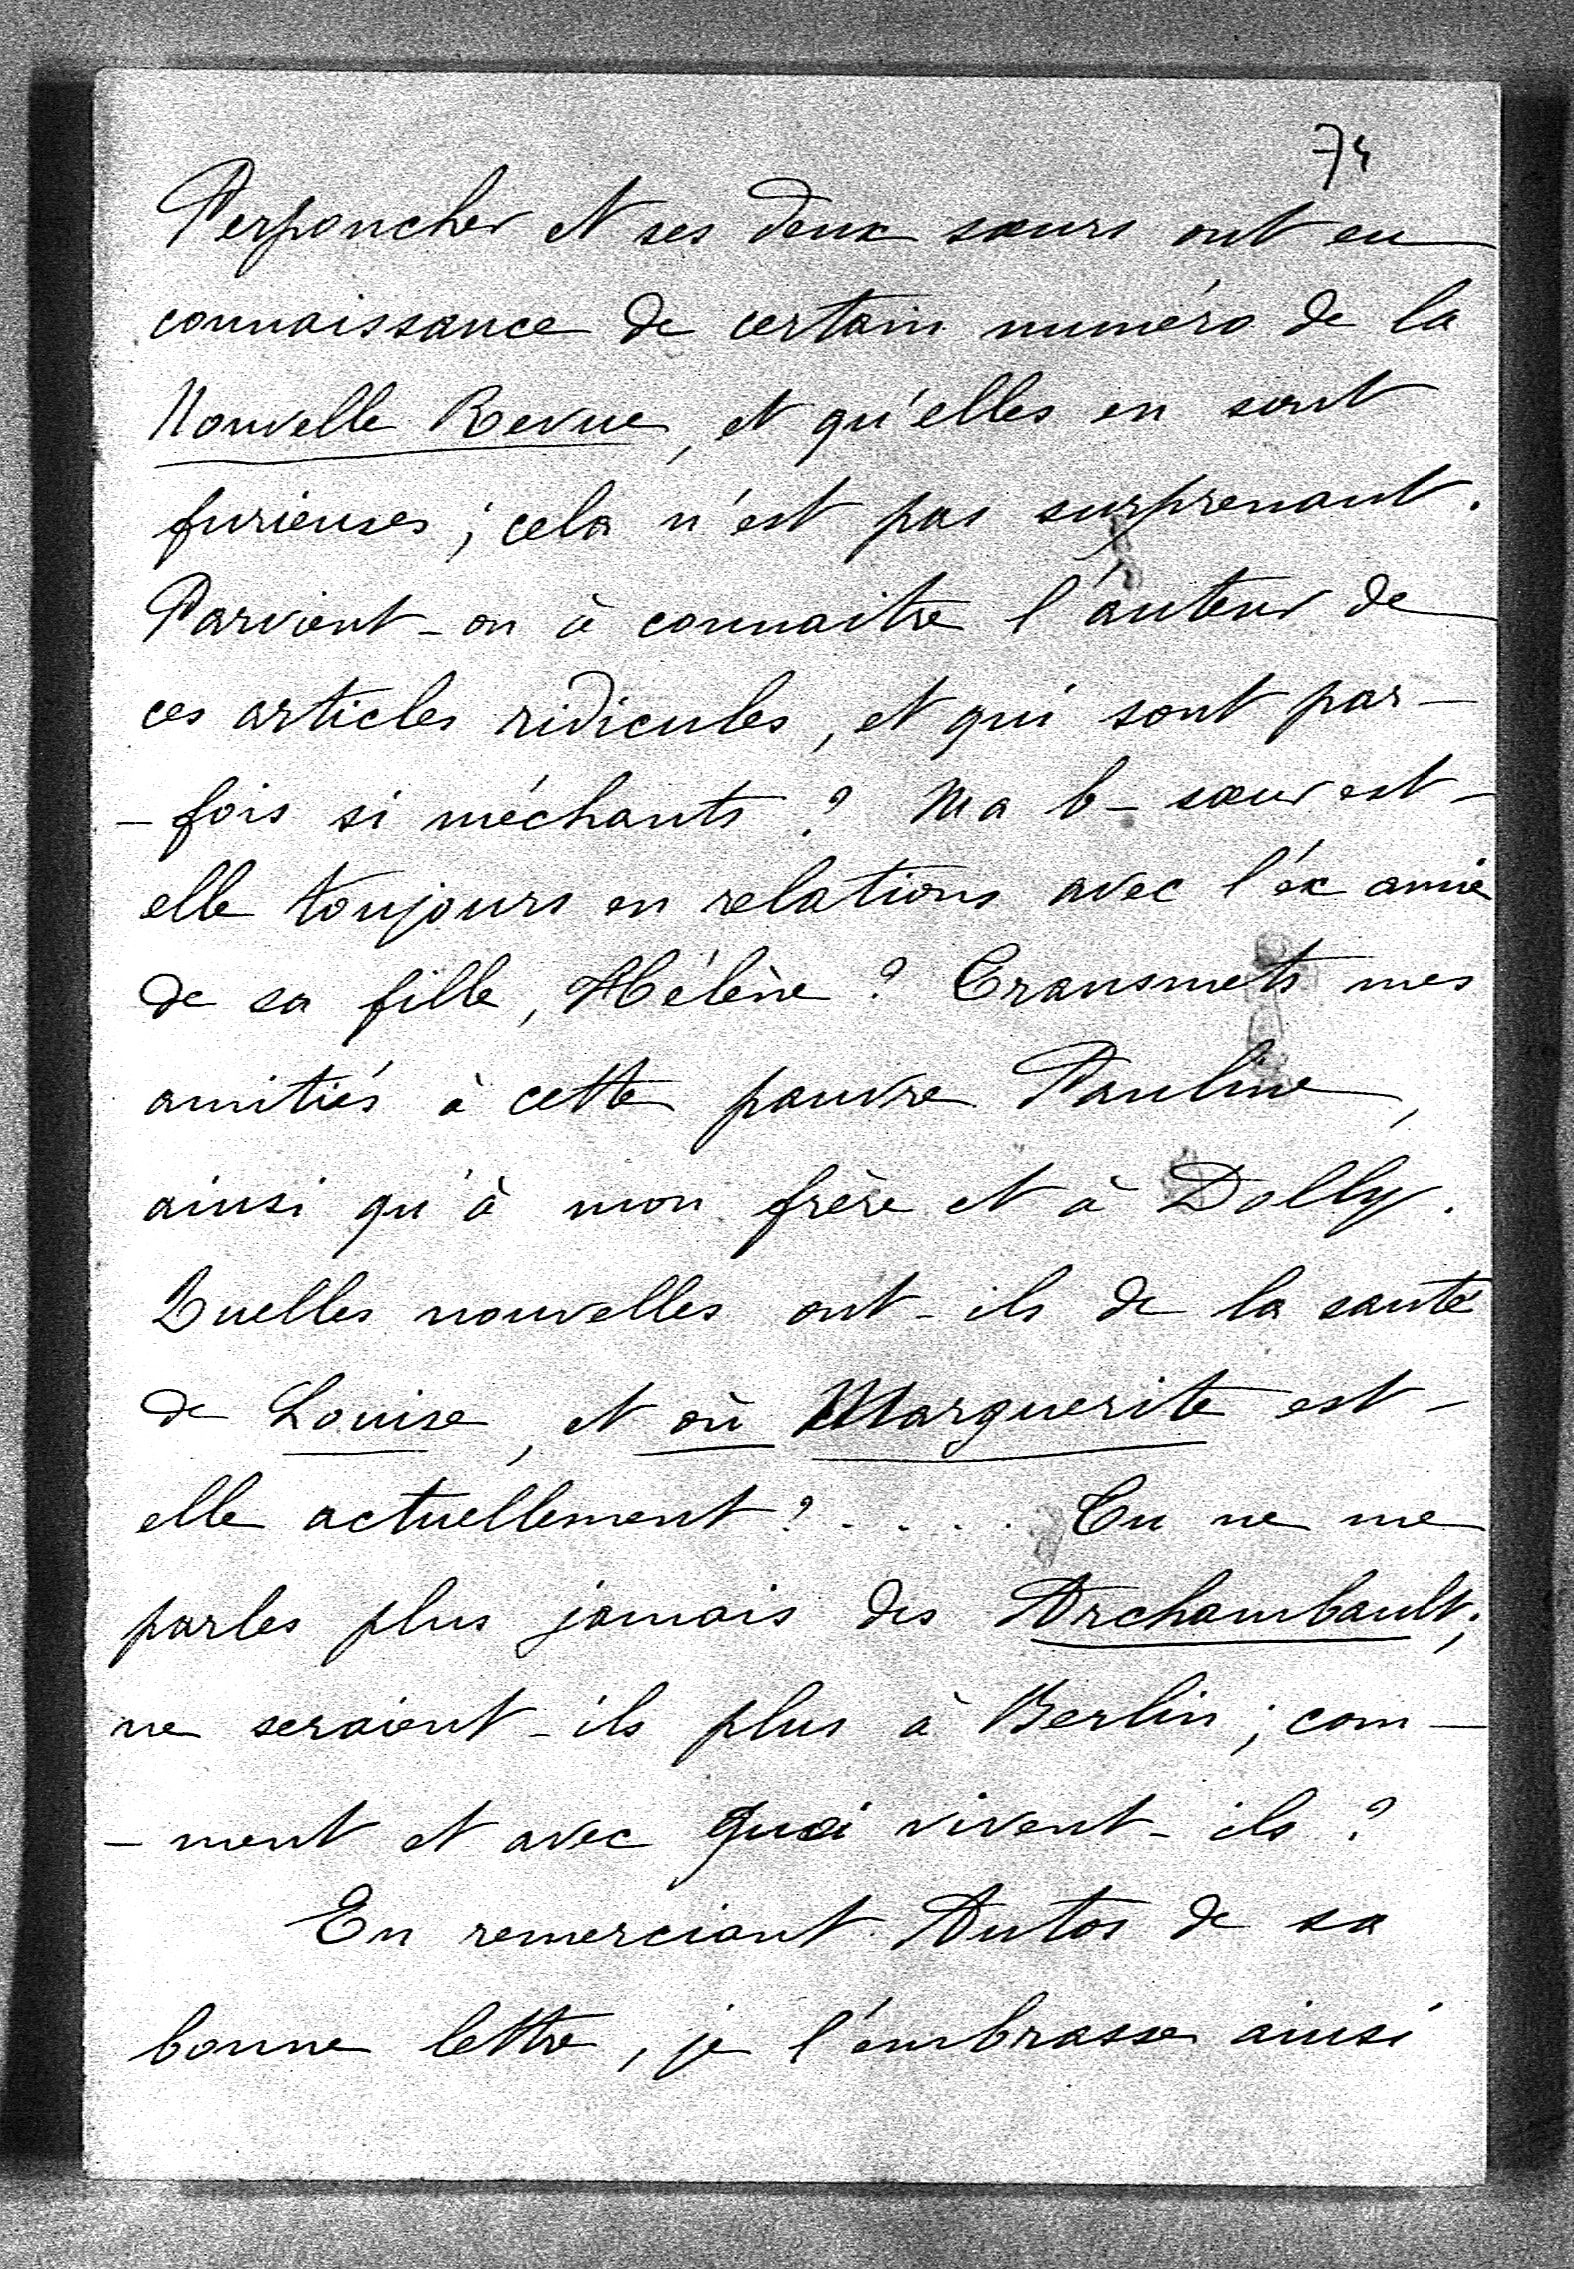 74
Perponcher et ses deux sœurs ont eu
connaissance de certain numéro de la
Nouvelle Revue, et qu'elles en sont
furieuses ; cela n'est pas surprenant.
Parvient-on à connaitre l'auteur de
ces articles ridicules, et qui sont par-
-fois si méchants ? Ma b-sœur est-
elle toujours en relations avec l'éx amie
de sa fille, Hélène ? Transmets mes
amitiés à cette pauvre Pauline,
ainsi qu'à mon frère et à Dolly.
Quelles nouvelles ont-ils de la santé
de Louise, et où Marguerite est-
elle actuellement ? . . . . Tu ne me
parles plus jamais des Archambault;
ne seraient-ils plus à Berlin ; com-
-ment et avec quoi vivent-ils ?
En remerciant Autos de sa
bonne lettre, je l'embrasse ainsi